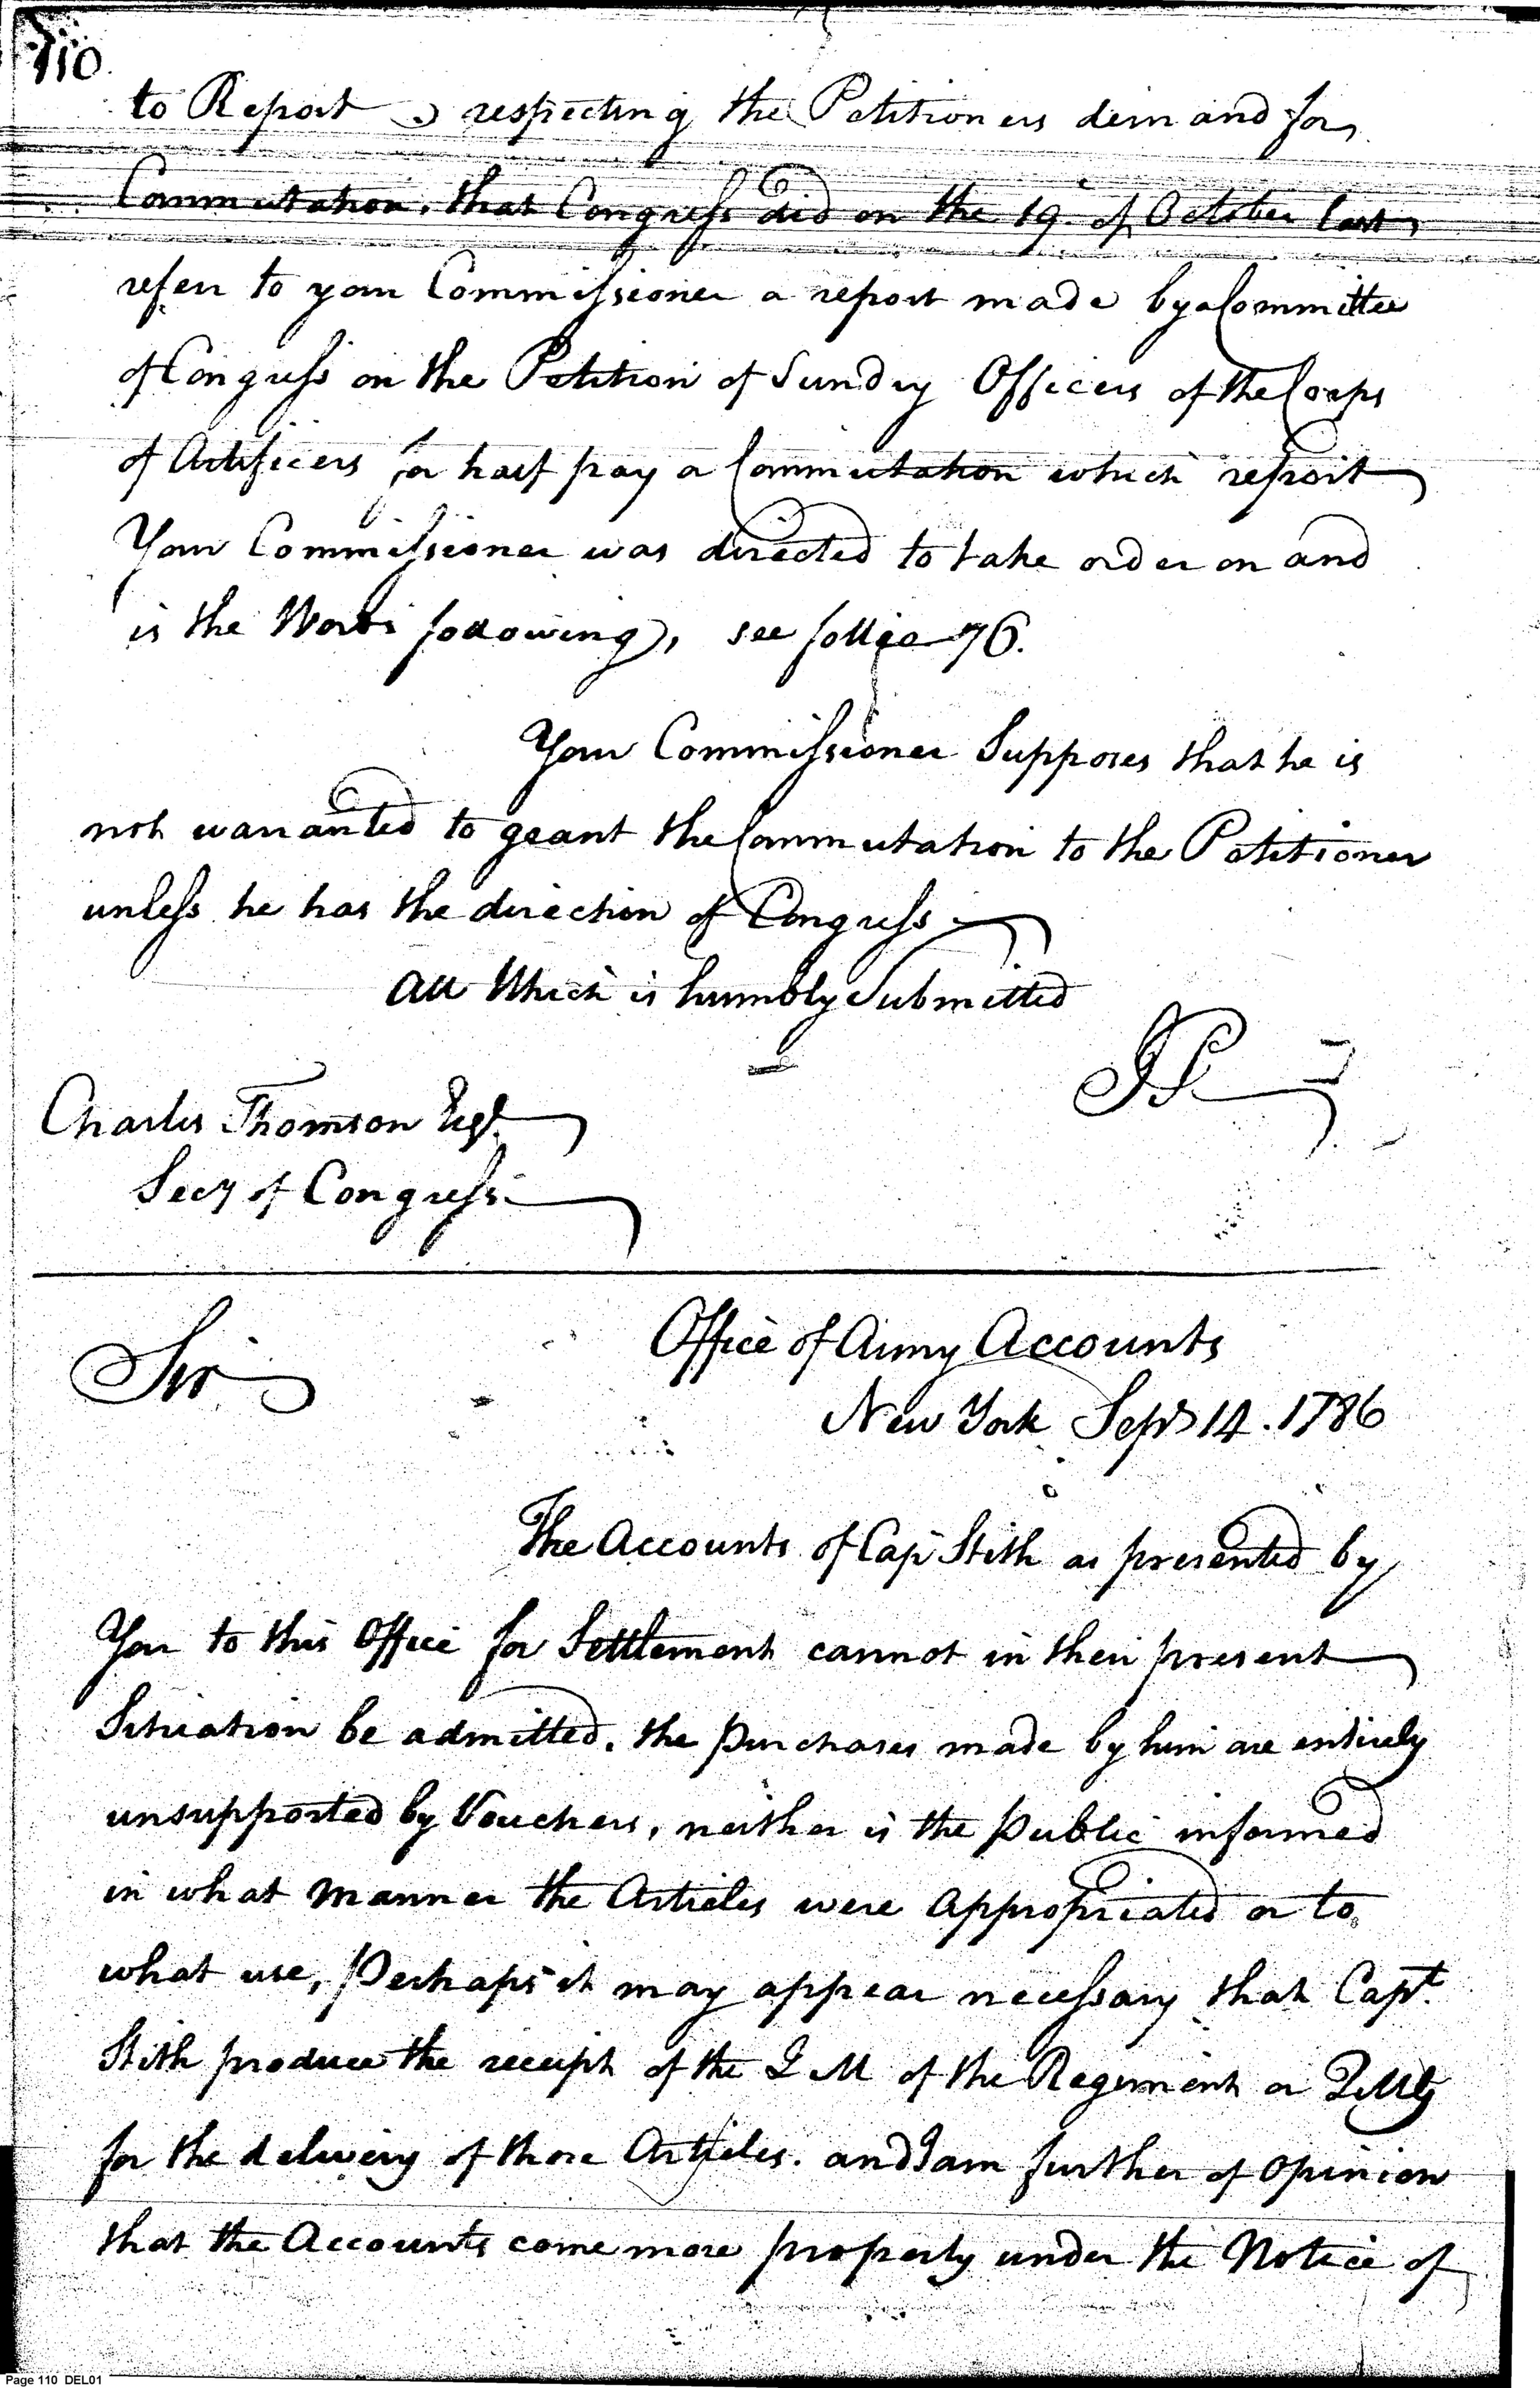 110
to Report respecting the Petitioners demand for
Commutation, that Congress did on the 19. of October last,
refer to your Commissioner a report made by a Committee
of Congress on the Petition of Sundry Officers of the Corps
of Artificers for half pay or Commutation which report
Your Commissioner was directed to take order on and
is the Words following, see follio 76.
Your Commissioner Supposes that he is
not warranted to grant the Commutation to the Petitioner
unless he has the direction of Congress
All Which is humbly Submitted
JP
Charles Thomson Esqr.
Secy of Congress
Office of Army Accounts
Sir
New York Sepr 14. 1786
The Accounts of Cap Stith as presented by
You to this Office for Settlement cannot in their present
Situation be admitted. the purchases made by him are entirely
unsupported by Vouchers, neither is the Public informed
in what manner the Articles were appropriated or to
what use, Perhaps it may appear necessary that Capt.
Stith produce the receipt of the Q M of the Regiment or QMG
for the delivery of those Articles. and I am further of opinion
that the Accounts come more properly under the Notice of
Page 110 DEL01